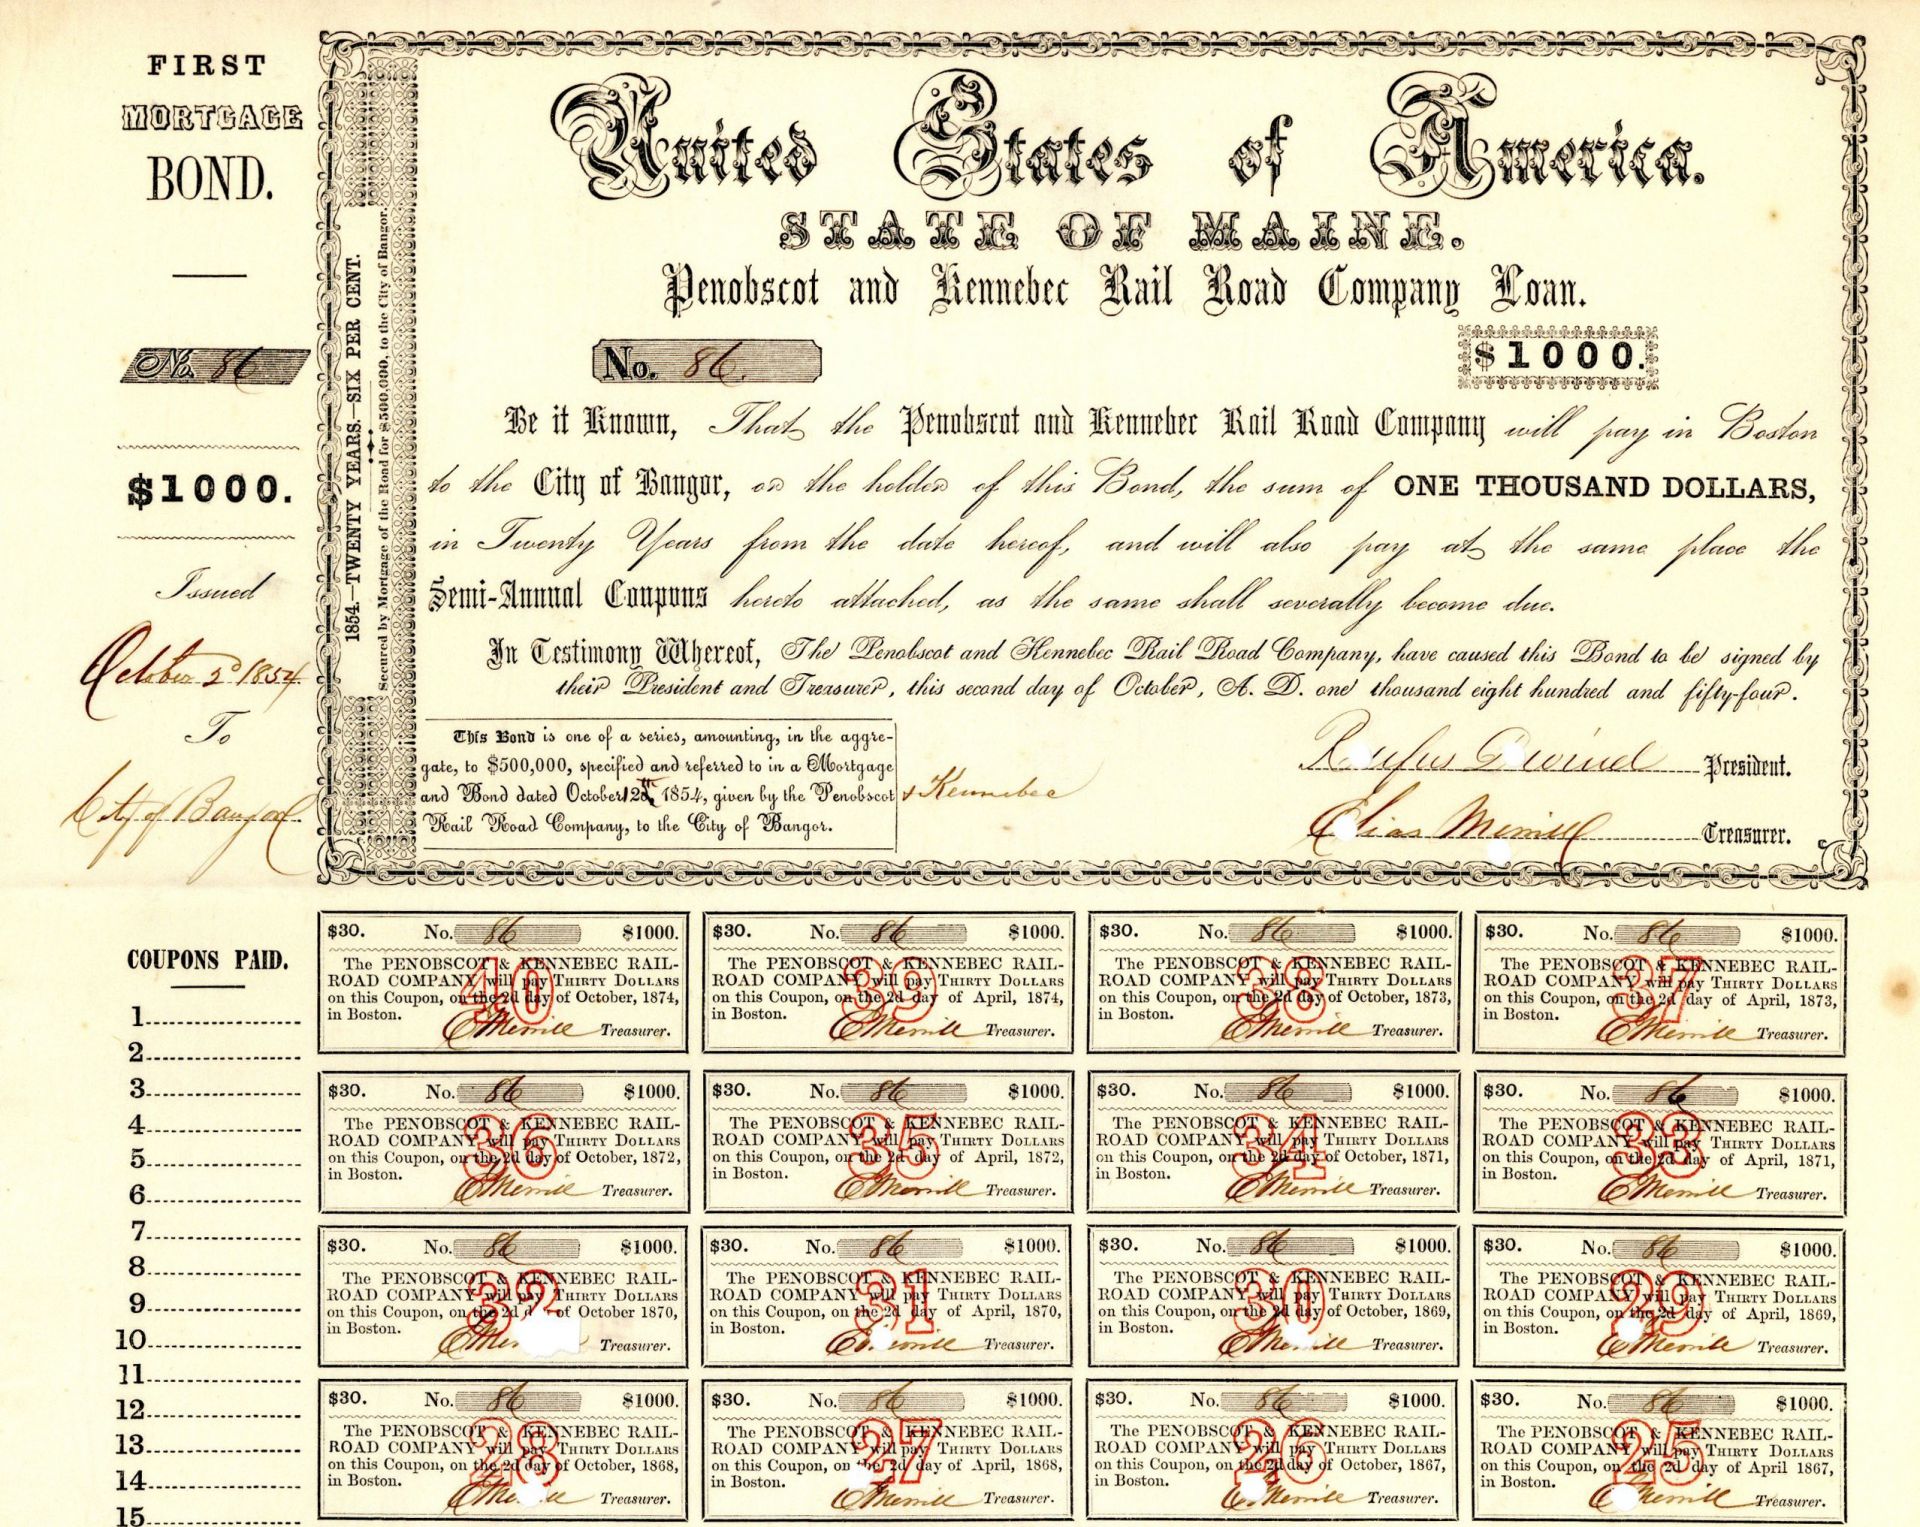 FIRST
MORTGAGE
BOND.
No. 86
$1000.
Issued
October 2d 1854
To
City of Bangor
1854.—TWENTY YEARS.—SIX PER CENT.
Secured by Mortgage of the Road for $500,000, to the City of Bangor.
United States of America.
STATE OF MAINE.
Penobscot and Kennebec Rail Road Company Loan.
No. 86.
$1000.
Be it Known, That the Penobscot and Kennebec Rail Road Company will pay in Boston
to the City of Bangor, or the holder of this Bond, the sum of ONE THOUSAND DOLLARS,
in Twenty Years from the date hereof, and will also pay at the same place the
Semi-Annual Coupons hereto attached, as the same shall severally become due.
In Testimony Whereof, The Penobscot and Kennebec Rail Road Company, have caused this Bond to be signed by
their President and Treasurer, this second day of October, A. D. one thousand eight hundred and fifty-four.
This Bond is one of a series, amounting, in the aggre-
gate, to $500,000, specified and referred to in a Mortgage
and Bond dated October 12th 1854, given by the Penobscot & Kennebec
Rail Road Company, to the City of Bangor.
Rufus Dwinel President.
Elias Merrill Treasurer.
COUPONS PAID.
1
2
3
4
5
6
7
8
9
10
11
12
13
14
15
$30. No. 86 $1000.
The PENOBSCOT & KENNEBEC RAIL-
ROAD COMPANY will pay THIRTY DOLLARS
on this Coupon, on the 2d day of October, 1874,
in Boston.
40
E Merrill Treasurer.
$30. No. 86 $1000.
The PENOBSCOT & KENNEBEC RAIL-
ROAD COMPANY will pay THIRTY DOLLARS
on this Coupon, on the 2d day of April, 1874,
in Boston.
39
E Merrill Treasurer.
$30. No. 86 $1000.
The PENOBSCOT & KENNEBEC RAIL-
ROAD COMPANY will pay THIRTY DOLLARS
on this Coupon, on the 2d day of October, 1873,
in Boston.
38
E Merrill Treasurer.
$30. No. 86 $1000.
The PENOBSCOT & KENNEBEC RAIL-
ROAD COMPANY will pay THIRTY DOLLARS
on this Coupon, on the 2d day of April, 1873,
in Boston.
37
E Merrill Treasurer.
$30. No. 86 $1000.
The PENOBSCOT & KENNEBEC RAIL-
ROAD COMPANY will pay THIRTY DOLLARS
on this Coupon, on the 2d day of October, 1872,
in Boston.
36
E Merrill Treasurer.
$30. No. 86 $1000.
The PENOBSCOT & KENNEBEC RAIL-
ROAD COMPANY will pay THIRTY DOLLARS
on this Coupon, on the 2d day of April, 1872,
in Boston.
35
E Merrill Treasurer.
$30. No. 86 $1000.
The PENOBSCOT & KENNEBEC RAIL-
ROAD COMPANY will pay THIRTY DOLLARS
on this Coupon, on the 2d day of October, 1871,
in Boston.
34
E Merrill Treasurer.
$30. No. 86 $1000.
The PENOBSCOT & KENNEBEC RAIL-
ROAD COMPANY will pay THIRTY DOLLARS
on this Coupon, on the 2d day of April, 1871,
in Boston.
33
E Merrill Treasurer.
$30. No. 86 $1000.
The PENOBSCOT & KENNEBEC RAIL-
ROAD COMPANY will pay THIRTY DOLLARS
on this Coupon, on the 2d d of October, 1870,
in Boston.
32
E Mer Treasurer.
$30. No. 86 $1000.
The PENOBSCOT & KENNEBEC RAIL-
ROAD COMPANY will pay THIRTY DOLLARS
on this Coupon, on the 2d day of April, 1870,
in Boston.
31
E Merrill Treasurer.
$30. No. 86 $1000.
The PENOBSCOT & KENNEBEC RAIL-
ROAD COMPANY will pay THIRTY DOLLARS
on this Coupon, on the 2d day of October, 1869,
in Boston.
30
E Merrill Treasurer.
$30. No. 86 $1000.
The PENOBSCOT & KENNEBEC RAIL-
ROAD COMPANY will pay THIRTY DOLLARS
on this Coupon, on the 2d day of April, 1869,
in Boston.
29
E Merrill Treasurer.
$30. No. 86 $1000.
The PENOBSCOT & KENNEBEC RAIL-
ROAD COMPANY will pay THIRTY DOLLARS
on this Coupon, on the 2d day of October, 1868,
in Boston.
28
E Merrill Treasurer.
$30. No. 86 $1000.
The PENOBSCOT & KENNEBEC RAIL-
ROAD COMPANY will pay THIRTY DOLLARS
on this Coupon, on the 2d day of April, 1868,
in Boston.
27
E Merrill Treasurer.
$30. No. 86 $1000.
The PENOBSCOT & KENNEBEC RAIL-
ROAD COMPANY will pay THIRTY DOLLARS
on this Coupon, on the 2d day of October, 1867,
in Boston.
26
E Merrill Treasurer.
$30. No. 86 $1000.
The PENOBSCOT & KENNEBEC RAIL-
ROAD COMPANY will pay THIRTY DOLLARS
on this Coupon, on the 2d day of April 1867,
in Boston.
25
E Merrill Treasurer.